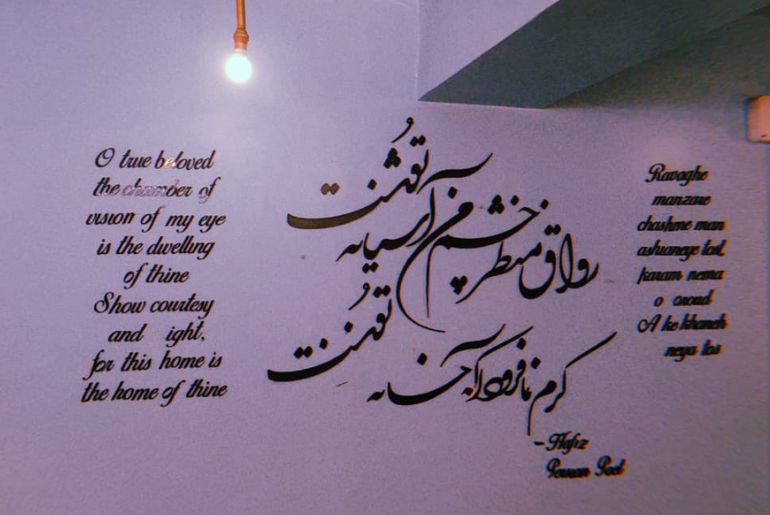 O true beloved
the chamber of
vision of my eye
is the dwelling
of thine
Show courtesy
and ight,
for this home is
the home of thine
رواق منظر چشم من آشیانه توست
کرم نما و فرود آ که خانه خانه توست
Ravaghe
manzare
chashme man
ashianeye tost
karam nema
o oroud
A ke khaneh
neya tos
- Hafiz
Persian Poet